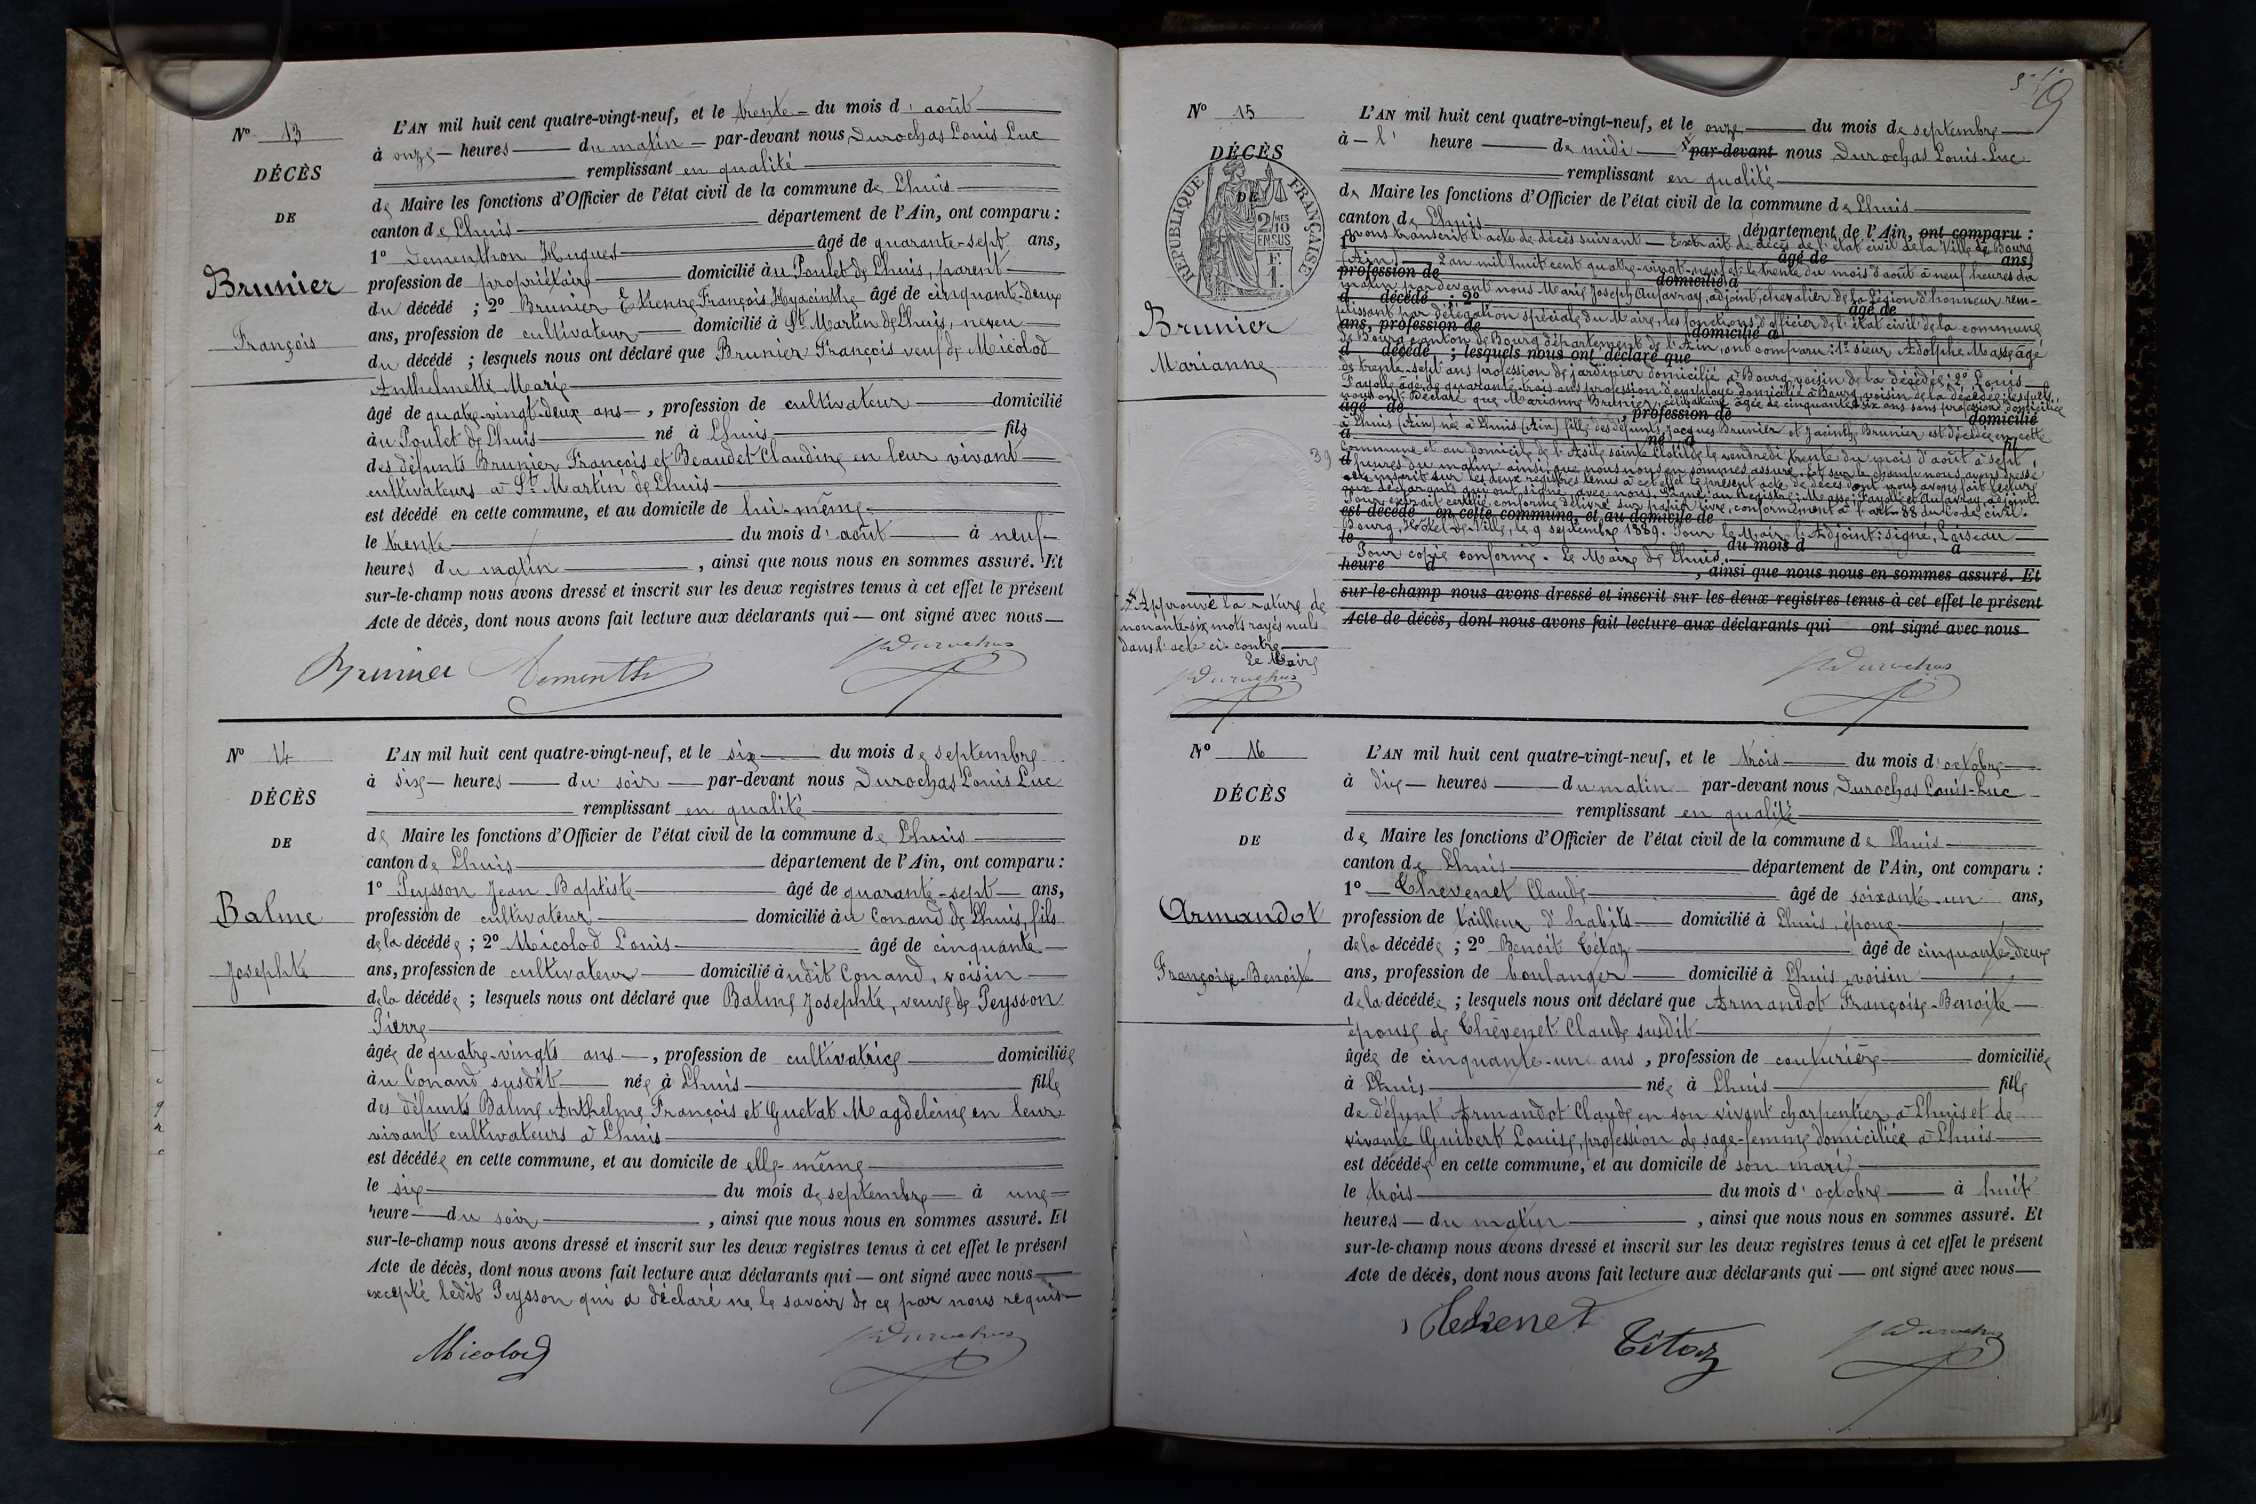 N° 13
DÉCÈS
DE
Brunier
François
L'AN mil huit cent quatre-vingt-neuf, et le trente du mois d' août
à onze heures du matin par-devant nous Durochas Louis Luc
remplissant en qualité
de Maire les fonctions d'Officier de l'état civil de la commune de Lhuis
canton de Lhuis département de l'Ain, ont comparu :
1° Dementhon Hugues âgé de quarante-sept ans,
profession de propriétaire domicilié au Poulet de Lhuis, parent
du décédé ; 2° Brunier Etienne François Hyacinthe âgé de cinquante-deux
ans, profession de cultivateur domicilié à St Martin de Lhuis, neveu
du décédé ; lesquels nous ont déclaré que Brunier François veuf de Micolod
Anthelmette Marie
âgé de quatre-vingt-deux ans, profession de cultivateur domicilié
au Poulet de Lhuis né à Lhuis fils
des défunts Brunier François et Beaudet Claudine en leur vivant
cultivateurs à St Martin de Lhuis
est décédé en cette commune, et au domicile de lui-même
le trente du mois d' août à neuf
heures du matin, ainsi que nous nous en sommes assuré. Et
sur-le-champ nous avons dressé et inscrit sur les deux registres tenus à cet effet le présent
Acte de décès, dont nous avons fait lecture aux déclarants qui — ont signé avec nous
Brunier Dementh Durochas
N° 14
DÉCÈS
DE
Balme
Josephte
L'AN mil huit cent quatre-vingt-neuf, et le six du mois de septembre
à six heures du soir par-devant nous Durochas Louis Luc
remplissant en qualité
de Maire les fonctions d'Officier de l'état civil de la commune de Lhuis
canton de Lhuis département de l'Ain, ont comparu :
1° Peysson Jean Baptiste âgé de quarante-sept ans,
profession de cultivateur domicilié au Conand de Lhuis, fils
de la décédée ; 2° Micolod Louis âgé de cinquante
ans, profession de cultivateur domicilié audit Conand, voisin
de la décédée ; lesquels nous ont déclaré que Balme Josephte, veuve de Peysson
Pierre
âgée de quatre-vingts ans, profession de cultivatrice domiciliée
au Conand susdit née à Lhuis fille
des défunts Balme Anthelme François et Guetat Magdeleine en leur
vivant cultivateurs à Lhuis
est décédée en cette commune, et au domicile de elle-même
le six du mois de septembre à une
heure du soir, ainsi que nous nous en sommes assuré. Et
sur-le-champ nous avons dressé et inscrit sur les deux registres tenus à cet effet le présent
Acte de décès, dont nous avons fait lecture aux déclarants qui — ont signé avec nous
excepté ledit Peysson qui a déclaré ne le savoir de ce par nous requis
Micolod Durochas
19
N° 15
DÉCÈS
DE
RÉPUBLIQUE FRANÇAISE
2/10 EN SUS
1 F.
Brunier
Marianne
L'AN mil huit cent quatre-vingt-neuf, et le onze du mois de septembre
à l' heure de midi par-devant nous Durochas Louis-Luc
remplissant en qualité
de Maire les fonctions d'Officier de l'état civil de la commune de Lhuis
canton de Lhuis département de l'Ain, ont comparu :
avons transcrit l'acte de décès suivant — Extrait de décès de l'état civil de la Ville de Bourg
(Ain) — L'an mil huit cent quatre-vingt-neuf et le trente du mois d'août à neuf heures du
matin par devant nous Marie Joseph Aufavray, adjoint, chevalier de la Légion d'honneur rem-
plissant par délégation spéciale du Maire, les fonctions d'officier de l'état civil de la commune
de Bourg canton de Bourg département de l'Ain, ont comparu : 1° sieur Adolphe Masse âgé
de trente-sept ans profession de jardinier domicilié à Bourg, voisin de la décédée ; 2° Louis
Fayolle âgé de quarante-trois ans profession d'employé domicilié à Bourg, voisin de la décédée lesquels
nous ont déclaré que Marianne Brunier, célibataire âgée de cinquante-six ans sans profession domiciliée
à Lhuis (Ain) née à Lhuis (Ain) fille des défunts Jacques Brunier et Jacinthe Brunier est décédée en cette
commune et au domicile de l'Asile sainte Clotilde le vendredi trente du mois d'août à sept
heures du matin ainsi que nous nous en sommes assuré. Et sur le champ nous avons dressé
et inscrit sur les deux registres tenus à cet effet le présent acte de décès dont nous avons fait lecture
aux déclarants qui ont signé avec nous. Signé au Registre : Masse, Fayolle et Aufavray, adjoint.
Pour extrait certifié conforme délivré sur papier libre, conformément à l'art. 88 du Code civil.
Bourg, Hôtel de Ville, le 9 septembre 1889. Pour le Maire, l'Adjoint : signé, Loiseau
Pour copie conforme. Le Maire de Lhuis.
heure d , ainsi que nous nous en sommes assuré. Et
sur-le-champ nous avons dressé et inscrit sur les deux registres tenus à cet effet le présent
Acte de décès, dont nous avons fait lecture aux déclarants qui ont signé avec nous
Approuvé la rature de
nonante-six mots rayés nuls
dans l'acte ci-contre
Le Maire
Durochas
Durochas
N° 16
DÉCÈS
DE
Armandot
Françoise-Benoite
L'AN mil huit cent quatre-vingt-neuf, et le trois du mois d' octobre
à dix heures du matin par-devant nous Durochas Louis-Luc
remplissant en qualité
de Maire les fonctions d'Officier de l'état civil de la commune de Lhuis
canton de Lhuis département de l'Ain, ont comparu :
1° Thevenet Claude âgé de soixante-un ans,
profession de tailleur d'habits domicilié à Lhuis, époux
de la décédée ; 2° Benoit Tétaz âgé de cinquante-deux
ans, profession de boulanger domicilié à Lhuis, voisin
de la décédée ; lesquels nous ont déclaré que Armandot Françoise-Benoite
épouse de Thévenet Claude susdit
âgée de cinquante-un ans, profession de couturière domiciliée
à Lhuis née à Lhuis fille
de défunt Armandot Claude en son vivant charpentier à Lhuis et de
vivante Guibert Louise, profession de sage-femme domiciliée à Lhuis
est décédée en cette commune, et au domicile de son mari
le trois du mois d' octobre à huit
heures du matin, ainsi que nous nous en sommes assuré. Et
sur-le-champ nous avons dressé et inscrit sur les deux registres tenus à cet effet le présent
Acte de décès, dont nous avons fait lecture aux déclarants qui — ont signé avec nous
Thevenet Tétaz Durochas